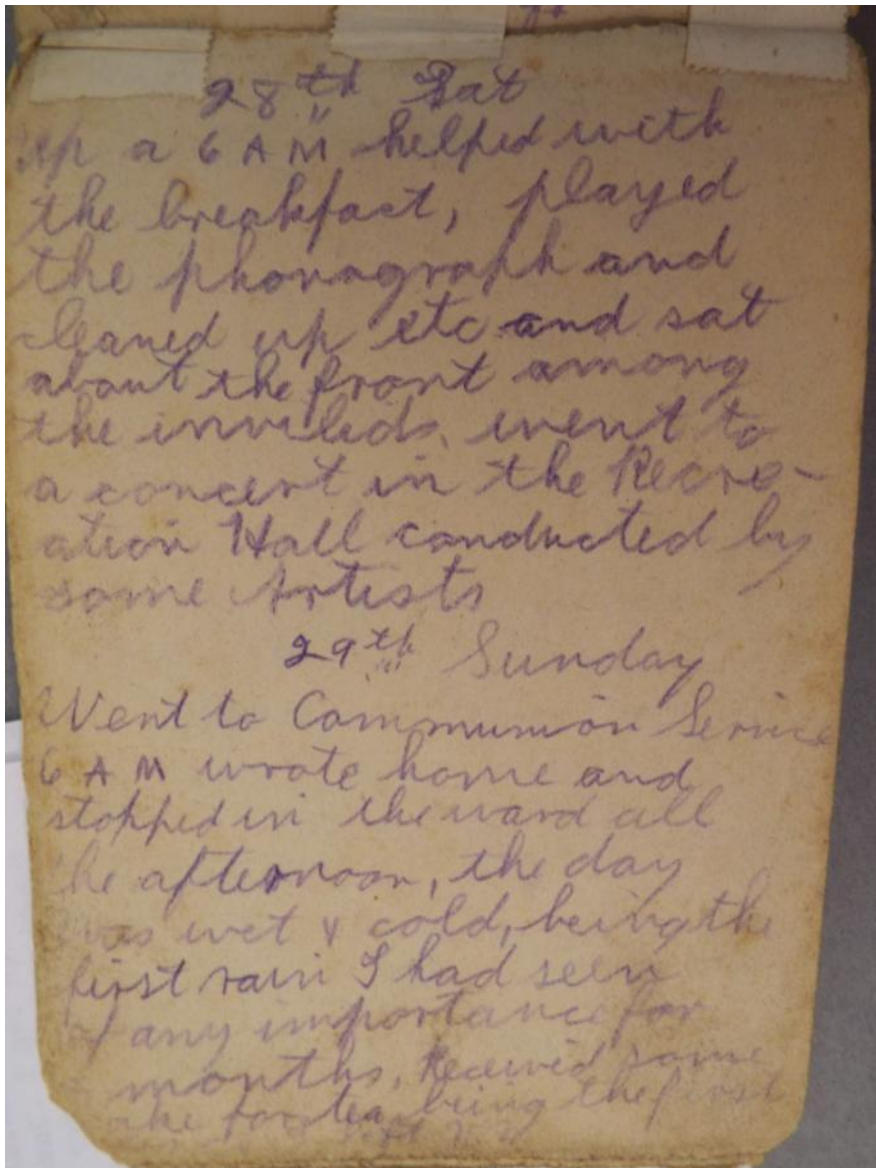 28th Sat
Up a 6 AM helped with
the breakfast, played
the phonograph and
cleaned up etc and sat
about the front among
the invileds, went to
a concert in the Recre-
ation Hall conducted by
some Artists
29th Sunday
Went to Communion Service
6 AM wrote home and
stopped in the ward all
he afternoon, the day
was wet & cold, being the
first rain I had seen
of any importance for
months, Received some
ake for tea being the first